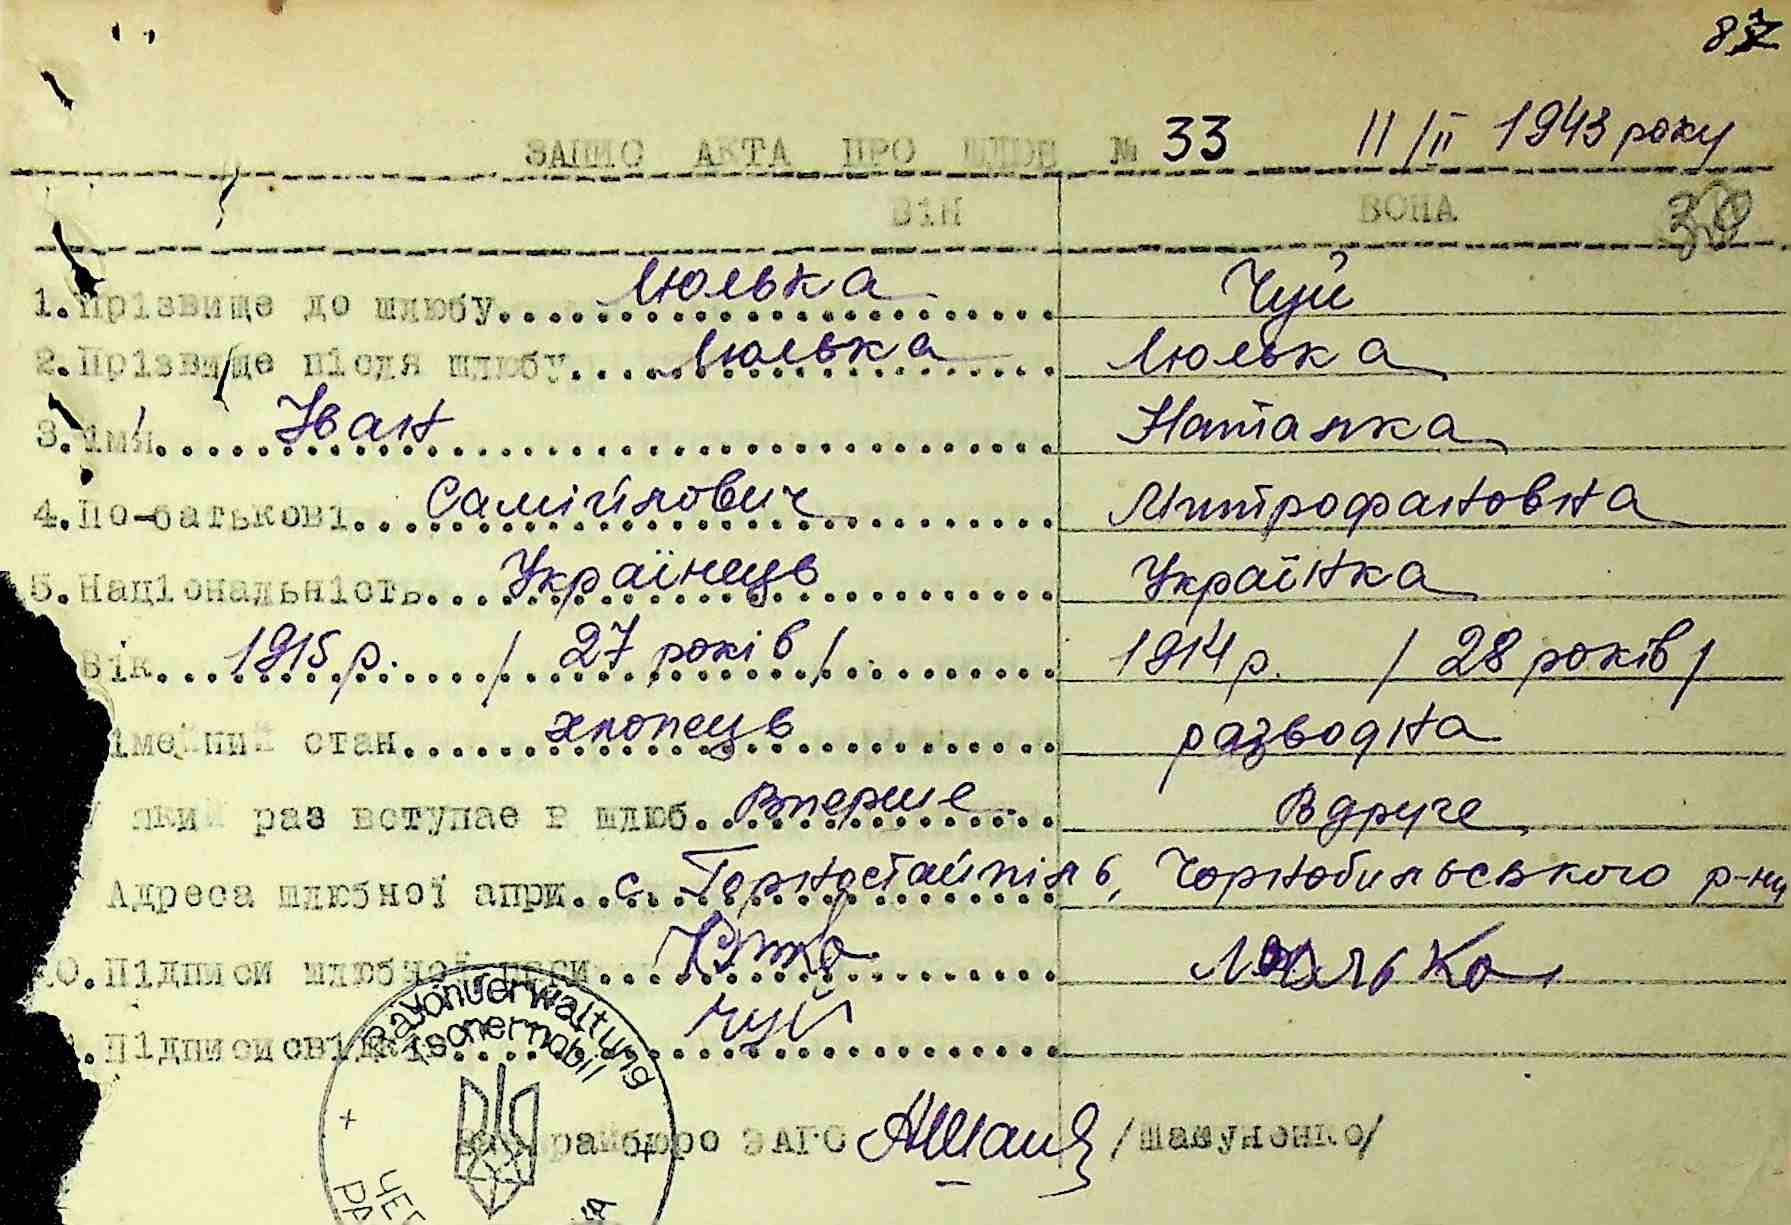 ЗАПИС АКТА ПРО ШЛЮБ № 33 11/II 1943 року
ВІН ВОНА
1. Прізвище до шлюбу Люлька Чуй
2. Прізвище після шлюбу Люлька Люлька
3. імя Іван Наталка
4. По-батькові Самійлович Митрофановна
5. Національність Українець Українка
Вік 1915 р. / 27 років / 1914 р. / 28 років /
імейний стан хлопець разводна
У який раз вступає в шлюб Вперше Вдруге
Адреса шлюбної апри с. Горностайпіль, Чорнобильського р-ну
0. Підписи шлюбної Люлька
. Підписи свідків Чуй
Rayonverwaltung
Tschernobil
райбюро ЗАГС /Шамуненко/